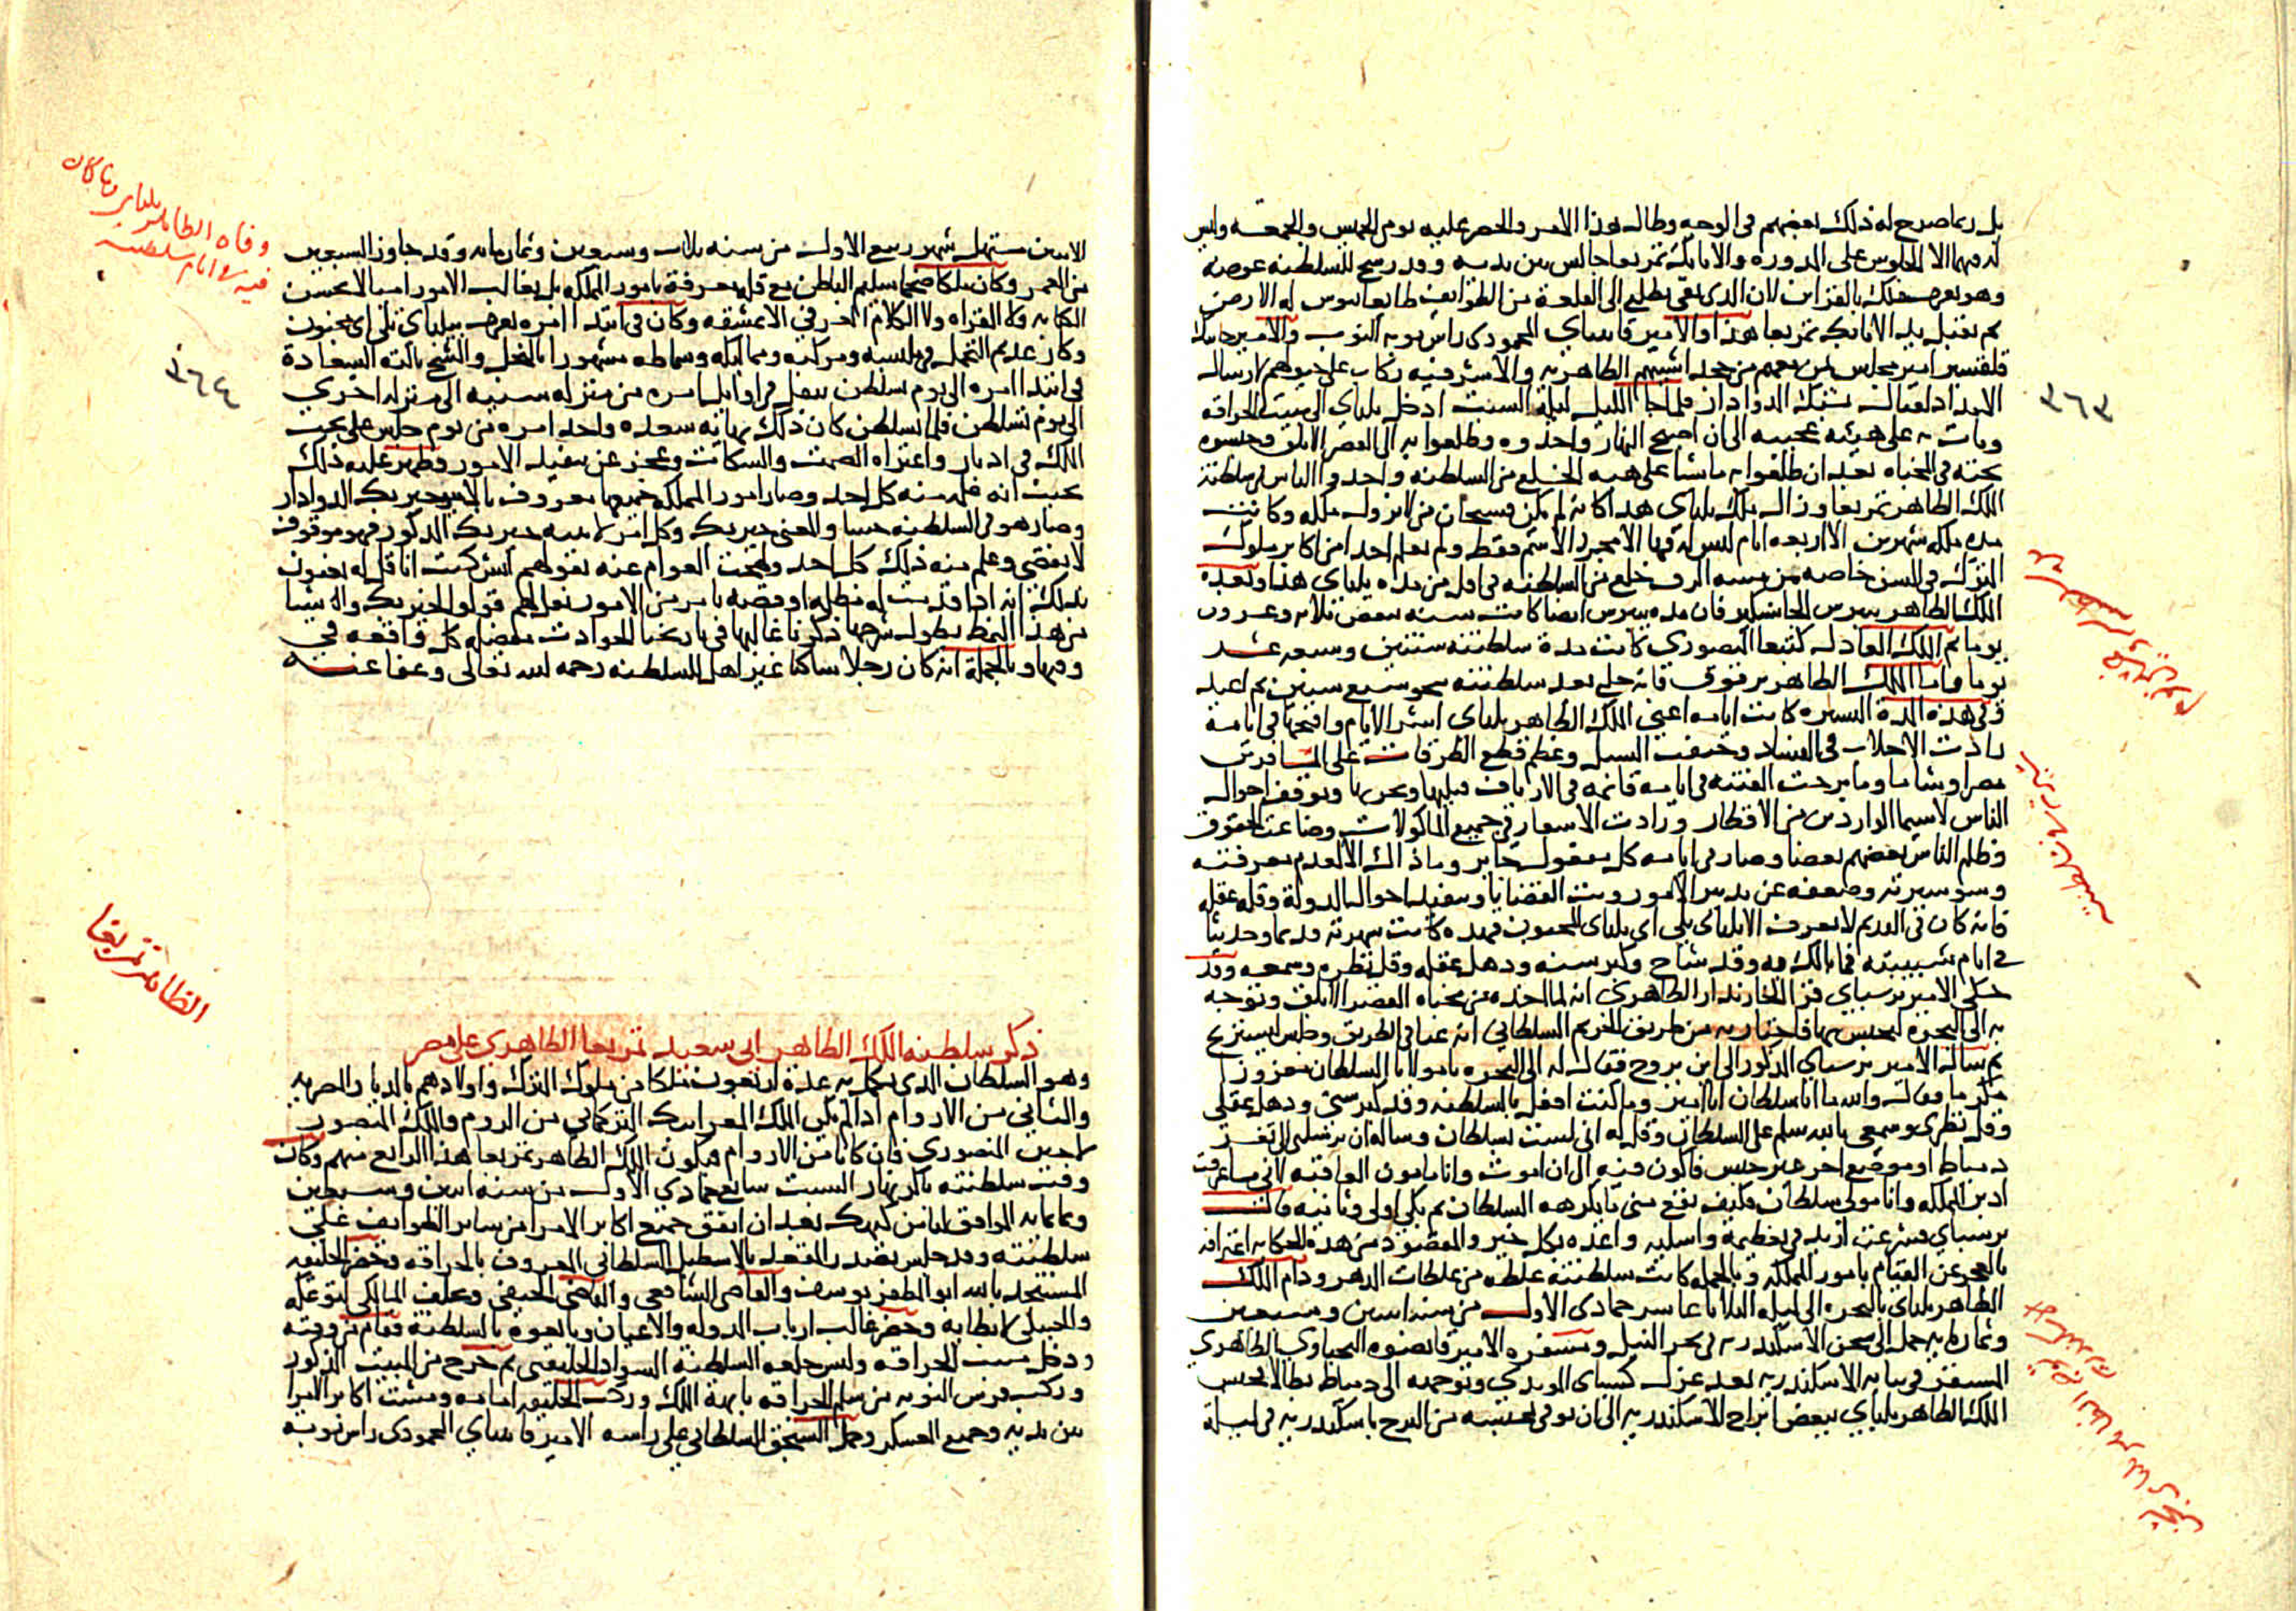 بل ربما صرح له ذلك بعضهم في الوجه وطال هذا الامر والحصر عليه يومى الخميس والجمعة وليس
له فيهما الا الجلوس على المدوره والاتابك تمربغا جالس بين يديه وقد رشح للسلطنه عوضه
وهو يعرف ذلك بالقراين لان الذى بقى يطلع الى القلعة من الطوايف طايعا يبوس له الارض
ثم يقبل يد الاتابك تمربغا هذا والامير قايتباى المحمودى راس نوبه النوب والامير جانبك
قلقسيز امير مجلس لمن معهم من خجداشيتهم الظاهريه والاشرفيه ركاب على خيولهم لارسال
الامداد لقتال يشبك الدوادار فلما جا الليل ليلة السبت ادخل يلباى الى مبيت الحراقه
وبات به على هيئه عجيبه الى ان اصبح النهار واخذوه وطلعوا به الى القصر الابلق وحبسوه
تحته فى المخباه بعد ان طلعوا به ماشيا على هيه الخلع من السلطنه واخذوا الناس فى سلطنة
الملك الظاهر تمربغا وزال ملك يلباى هذا كانه لم يكن فسبحان من لا يزول ملكه وكانت
مده ملكه شهرين الا اربعه ايام ليس له فيها الا مجرد الاسم فقط ولم نعلم احدا من اكابر ملوك
الترك فى السن خاصه من مسه الرق خلع من السلطنه فى اقل من مده يلباى هذا وبعده
الملك المظفر بيبرس الجاشنكير فان مده بيبرس ايضا كانت سنه بعض ثلاثه وعشرون
يوما ثم الملك العادل كتبغا المنصورى كانت مدة سلطنته سنتين وسبعه عشر
يوما واما الملك الظاهر برقوق فانه خلع بعد سلطنته نحو سبع سنين ثم اعيد
وفى هذه المدة اليسيره كانت ايامه اعنى الملك الظاهر يلباى اشر الايام واقبحها فى ايامه
زادت الاجلاب فى الفساد وخيفت السبل وعظم قطع الطرقات على المسافرين
مصرا وشاما وما برحت الفتنه فى ايامه قائمه فى الارياف قبليها وبحريها وتوقف احوال
الناس لاسيما الواردين من الاقطار وزادت الاسعار فى جميع الماكولات وضاعت الحقوق
وظلم الناس بعضهم بعضا وصار فى ايامه كل مفعول جايز وما ذاك الا لعدم معرفته
وسو سيرته وضعفه عن تدبير الامور وبت القضايا وتنفيذ احوال الدولة وقله عقله
فانه كان فى القديم لا يعرف الا بيلباى تلى اى يلباى المجنون فهذه كانت شهرته قديما وحديثا
فى ايام شبيبته فما بالك به وقد شاخ وكبر سنه وذهل عقله وقل نظره وسمعه وقد
حكى الامير برسباى قرا الخازندار الظاهرى انه لما اخذه من مخباه القصر الابلق وتوجه
به الى البحره ليحبس بها فاجتاز به من طريق الحريم السلطانى انه عيا فى الطريق وجلس ليستريح
ثم ساله الامير برسباى المذكور الى اين نروح فقال له الى البحره يا مولانا السلطان معزوزا
مكرما فقال والله ما انا سلطان انا امير وما كنت افعل بالسلطنه وقد كبر سنى وذهل عقلى
وقل نظرى وسمعى بالله سلم على السلطان وقل له انى لست بسلطان وساله ان يرسلنى الى ثغر
دمياط او موضع اخر غير حبس فاكون فيه الى ان اموت وانا مامون العاقبه لانى ما عرفت
ادبر المملكه وانا مولى سلطان فكيف يقع منى ما يكرهه السلطان ثم بكى اولى وثانيه قال
برسباى فشرعت ازيد فى تعظيمه واسليه واعده بكل خير والمقصود من هذه الحكايه اعترافه
بالعجز عن القيام بامور المملكه وبالجمله كانت سلطنته غلطه من غلطات الدهر ودام الملك
الظاهر يلباى بالبحره الى ليله الثلاثا عاشر جمادى الاول من سنه اثنين وسبعين
وثمانمايه حمل الى سجن الاسكندريه فى بحر النيل ومسفره الامير قانصوه اليحياوى الظاهرى
المستقر فى نيابه الاسكندريه بعد عزل كسباى المويدى وتوجهه الى دمياط بطالا فحبس
الملك الظاهر يلباى ببعض ابراج الاسكندريه الى ان توفى بحبسه من البرج باسكندريه فى ليلة
٣٦٣
الاثنين مستهل شهر ربيع الاول من سنه ثلاث وسبعين وثمان مايه وقد جاوز السبعين
من العمر وكان ملكا ضخما سليم الباطن مع قله معرفة بامور المملكه بل بغالب الامور اميا لا يحسن
الكتابه ولا القراه ولا الكلام العرفى الا بمشقه وكان فى ابتدا امره يعرف بيلباى تلى اى مجنون
وكان عديم التجمل فى ملبسه ومركبه ومماليكه وسماطه مشهورا بالبخل والشح نالته السعادة
فى ابتدا امره الى يوم سلطن ينقل فى اوايل امره من منزله سنيه الى منزله اخرى
الى يوم تسلطن فلما تسلطن كان ذلك نهايه سعده واخذ امره من يوم جلس على تخت
الملك فى ادبار واعتراه الصمت والسكات وعجز عن تنفيذ الامور وظهر عليه ذلك
بحيث انه علم منه كل احد وصار امور المملكه جميعها معروف بالامير خيربك الدوادار
وصار هو فى السلطنه حسا والمعنى خيربك وكل امر لا يبته خيربك المذكور فهو موقوف
لا يقضى وعلم منه ذلك كل احد ولهجت العوام عنه بقولهم ايش كنت انا قل له يعنون
بذلك انه اذا قدمت له مظلمه او قصه بامر من الامور يقول لهم قولوا لخيربك واشيا
من هذا النمط يطول شرحها ذكرنا غالبها فى تاريخنا الحوادث مفصله كل واقعه فى
وقتها وبالجملة انه كان رجلا ساكنا غير اهل للسلطنه رحمه الله تعالى وعفا عنه
وفاه الظاهر يلباى وما كان
فيه من ايام سلطنته
٣٦٤
ذكر سلطنه الملك الظاهر ابى سعيد تمربغا الظاهرى على مصر
الظاهر تمربغا
وهو السلطان الذى تكمل به عدة اربعون ملكا من ملوك الترك واولادهم بالديار المصريه
والثانى من الاروام اذا لم يكن الملك المعز ايبك التركمانى من الروم والملك المنصور
لاجين المنصورى فان كانا من الاروام فيكون الملك الظاهر تمربغا هذا الرابع منهم وكان
وقت سلطنته باكر نهار السبت سابع جمادى الاول من سنه اثنين وسبعين
وثمانمايه الموافق لثامن كيهك بعد ان اتفق جميع اكابر الامرا من ساير الطوايف على
سلطنته وقد جلس بصدر المقعد بالاسطبل السلطانى المعروف بالحراقه وحضر الخليفه
المستنجد بالله ابو المظفر يوسف والقاضى الشافعى والقاضى الحنفى وتخلف المالكى لتوعكه
والحنبلى لابطايه وحضر غالب ارباب الدوله والاعيان وبايعوه بالسلطنة وقام من وقته
ودخل مبيت الحراقه ولبس خلعه السلطنة السواد الخليفتى ثم خرج من المبيت المذكور
وركب فرس النوبه من سلم الحراقه بابهة الملك وركب الخليفه امامه ومشت اكابر الامرا
بين يديه وجميع العسكر وحمل السنجق السلطانى على راسه الامير قايتباى المحمودى راس نوبه